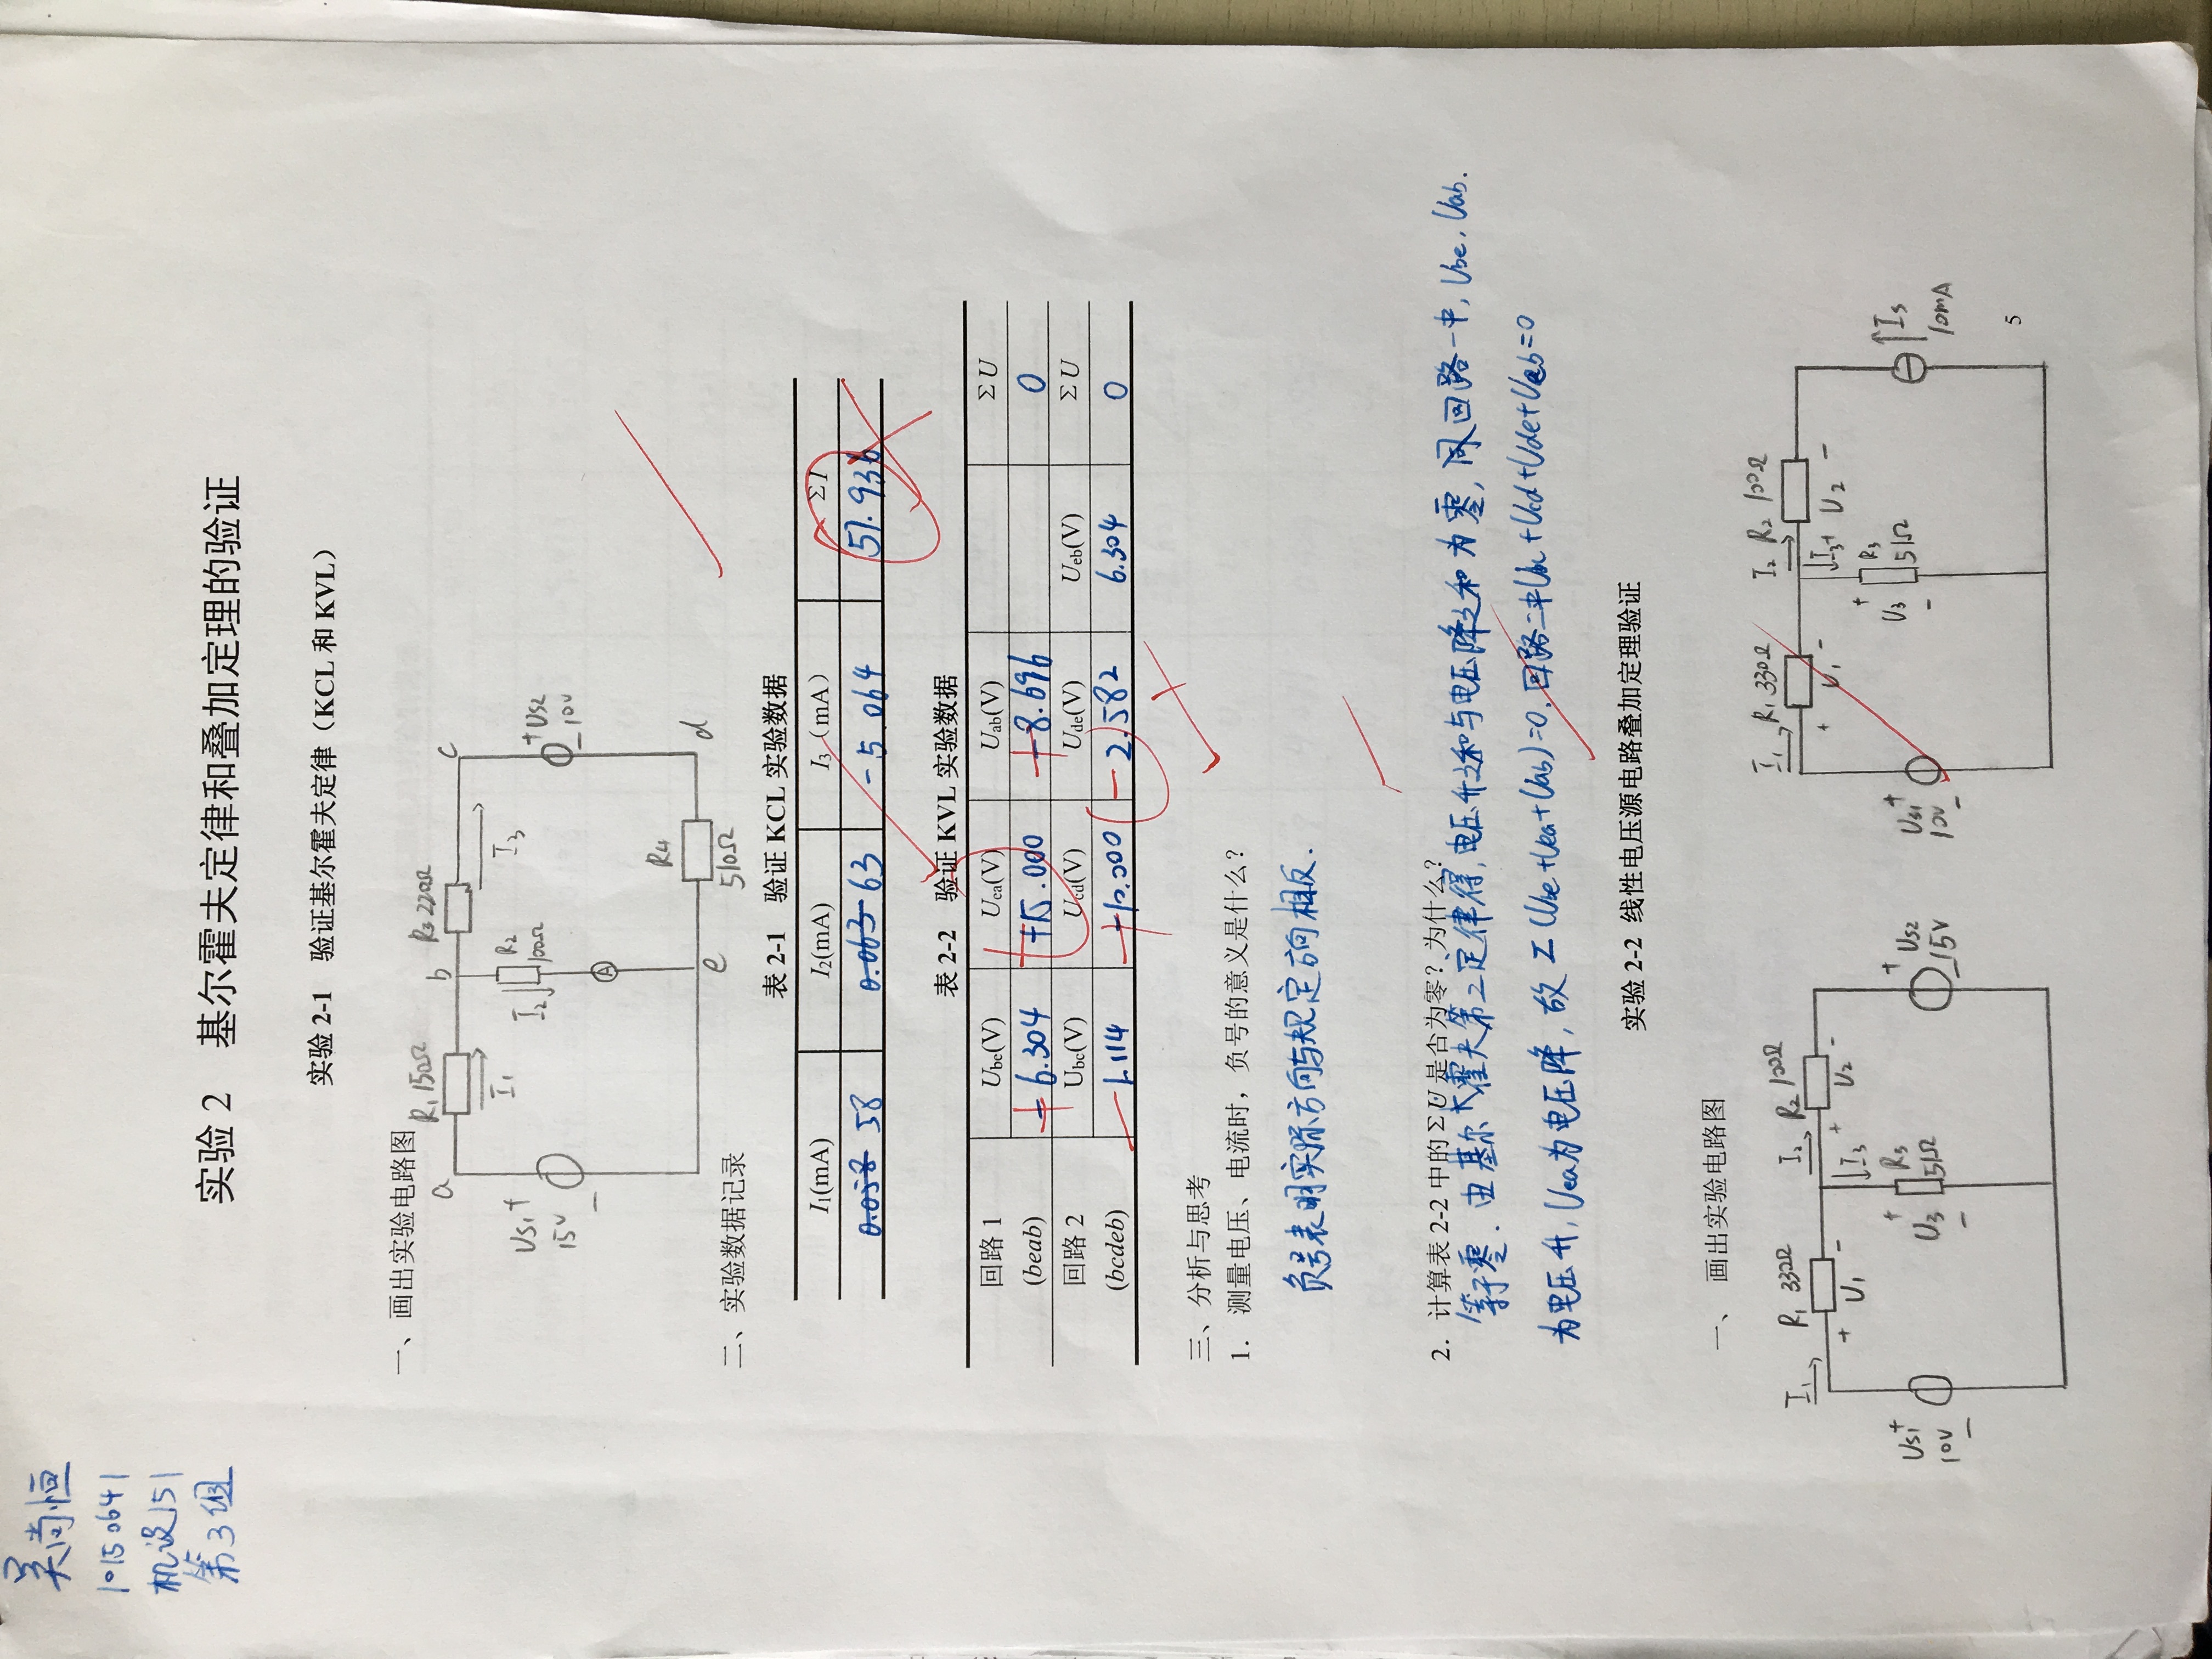 吴尚恒
10150641
机设151
第3组
实验 2 基尔霍夫定律和叠加定理的验证
实验 2-1 验证基尔霍夫定律（KCL 和 KVL）
一、画出实验电路图
a R₁ 150Ω b R₃ 220Ω c
I₁ I₂ R₂ 100Ω I₃
US1 + 15V − A + US2 10V −
e R4 510Ω d
二、实验数据记录
表 2-1 验证 KCL 实验数据
I₁(mA) I₂(mA) I₃(mA) ΣI
0.058 58 0.063 63 -5.064 57.936
表 2-2 验证 KVL 实验数据
回路 1 (beab) Ube(V) Uea(V) Uab(V) ΣU
6.304 15.000 8.696 0
回路 2 (bcdeb) Ubc(V) Ucd(V) Ude(V) Ueb(V) ΣU
1.114 10.000 2.582 6.304 0
三、分析与思考
1. 测量电压、电流时，负号的意义是什么？
负号表明实际方向与规定方向相反.
2. 计算表 2-2 中的 ΣU 是否为零？为什么？
等于零. 由基尔霍夫第二定律得, 电压升之和与电压降之和为零, 同回路一中, Ube, Uab.
为电压升, Uea为电压降, 故 Σ(Ube+Uea+Uab)=0. 回路二中Ubc+Ucd+Ude+Ueb=0
实验 2-2 线性电压源电路叠加定理验证
一、画出实验电路图
I₁ R₁ 330Ω I₂ R₂ 100Ω
+ U₁ − I₃ + U₂ −
US1 + 10V − + U₃ − R₃ 51Ω + US2 15V −
I₁ R₁ 330Ω I₂ R₂ 100Ω
+ U₁ − I₃ + U₂ −
US1 + 10V − + U₃ − R₃ 51Ω IS 10mA
5